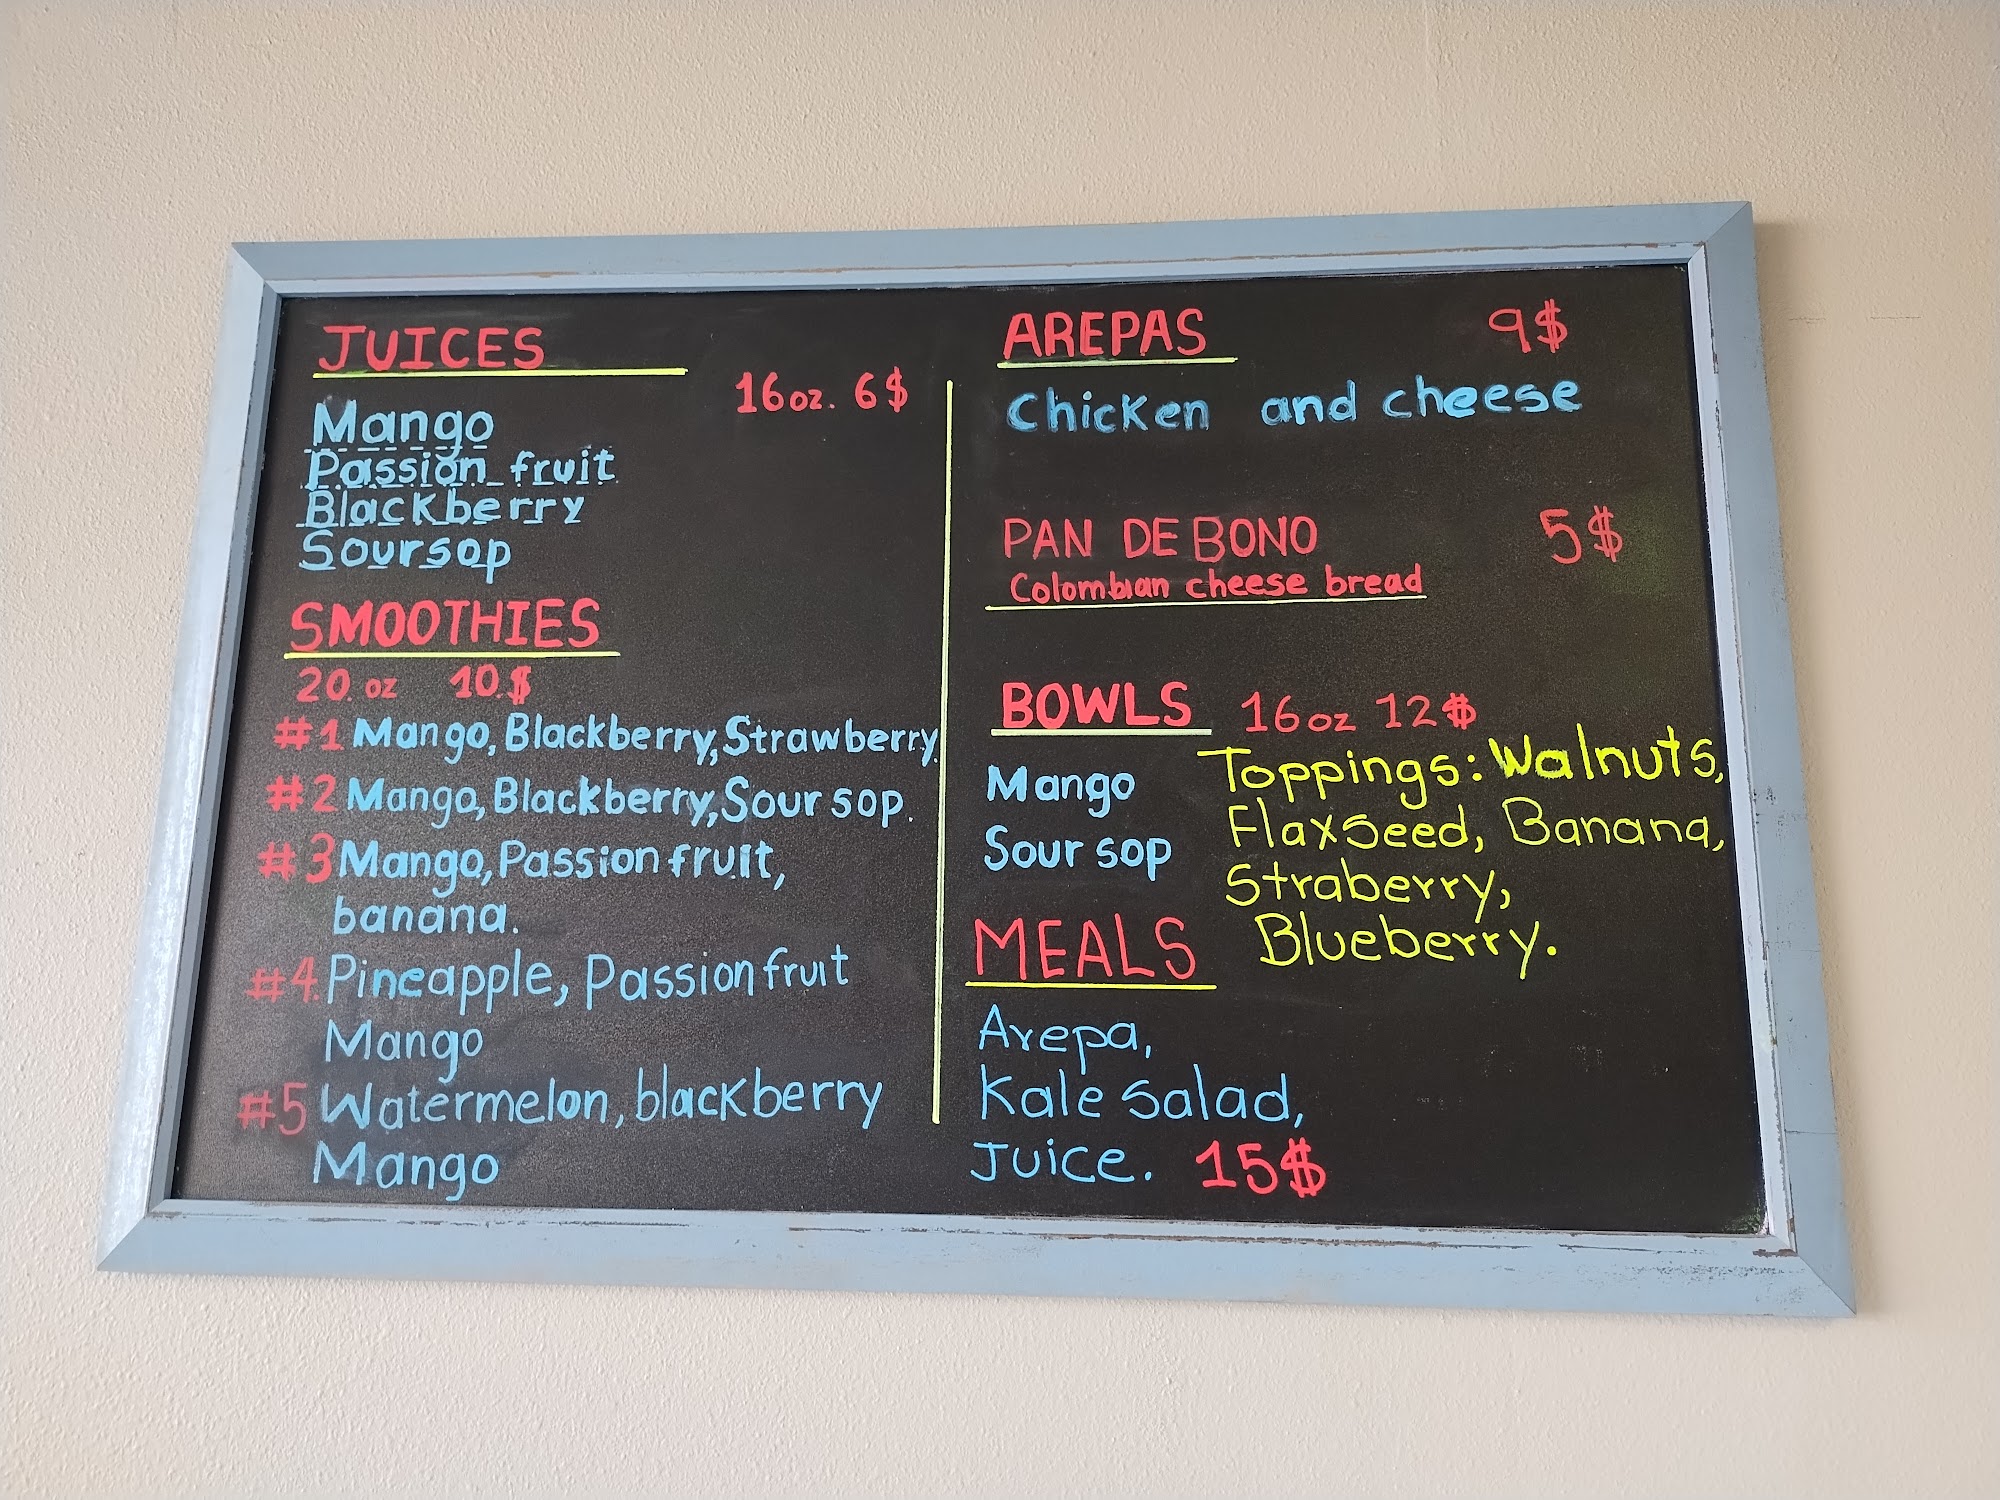 JUICES
16oz. 6$
Mango
Passion fruit
Blackberry
Soursop
SMOOTHIES
20.oz 10.$
#1 Mango, Blackberry, Strawberry.
#2 Mango, Blackberry, Sour sop.
#3 Mango, Passion fruit,
banana.
#4. Pineapple, Passion fruit
Mango
#5 Watermelon, blackberry
Mango
AREPAS 9$
Chicken and cheese
PAN DE BONO 5$
Colombian cheese bread
BOWLS 16oz 12$
Mango
Sour sop
Toppings: Walnuts,
Flaxseed, Banana,
Straberry,
Blueberry.
MEALS
Arepa,
Kale Salad,
Juice. 15$